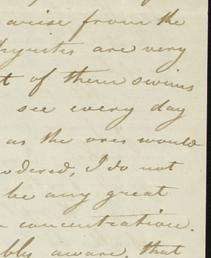 arise from the
hyrites are very
t of them swims
see every day
as the ores would
wdered, I do not
be any great
concentration.
bly aware, that